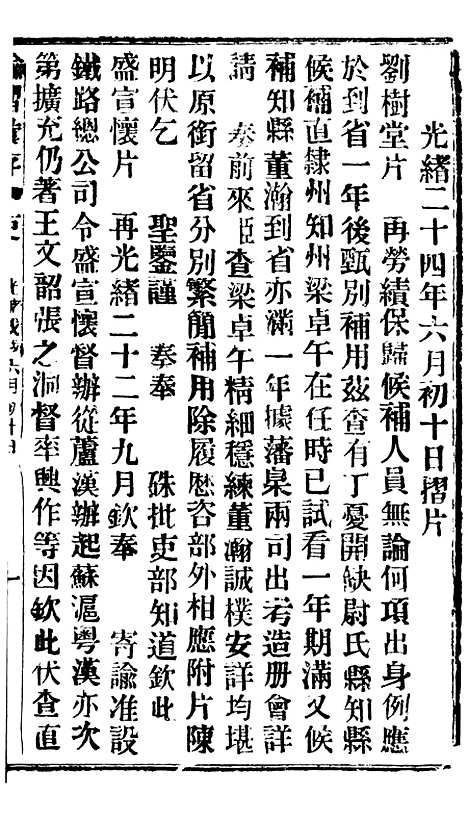 光緒二十四年六月初十日摺片
劉樹堂片　再勞績保歸候補人員無論何項出身例應
於到省一年後甄別補用茲查有丁憂開缺尉氏縣知縣
候補直隸州知州梁卓午在任時已試看一年期滿又候
補知縣董瀚到省亦滿一年據藩臬兩司出考造册會詳
請　奏前來臣查梁卓午精細穩練董瀚誠樸安詳均堪
以原銜留省分別繁簡補用除履歷咨部外相應附片陳
明伏乞　聖鑒謹　奏奉　硃批吏部知道欽此
盛宣懷片　再光緒二十二年九月欽奉　寄諭准設
鐵路總公司令盛宣懷督辦從蘆漢辦起蘇滬粵漢亦次
第擴充仍著王文韶張之洞督率興作等因欽此伏查直
諭摺彙存